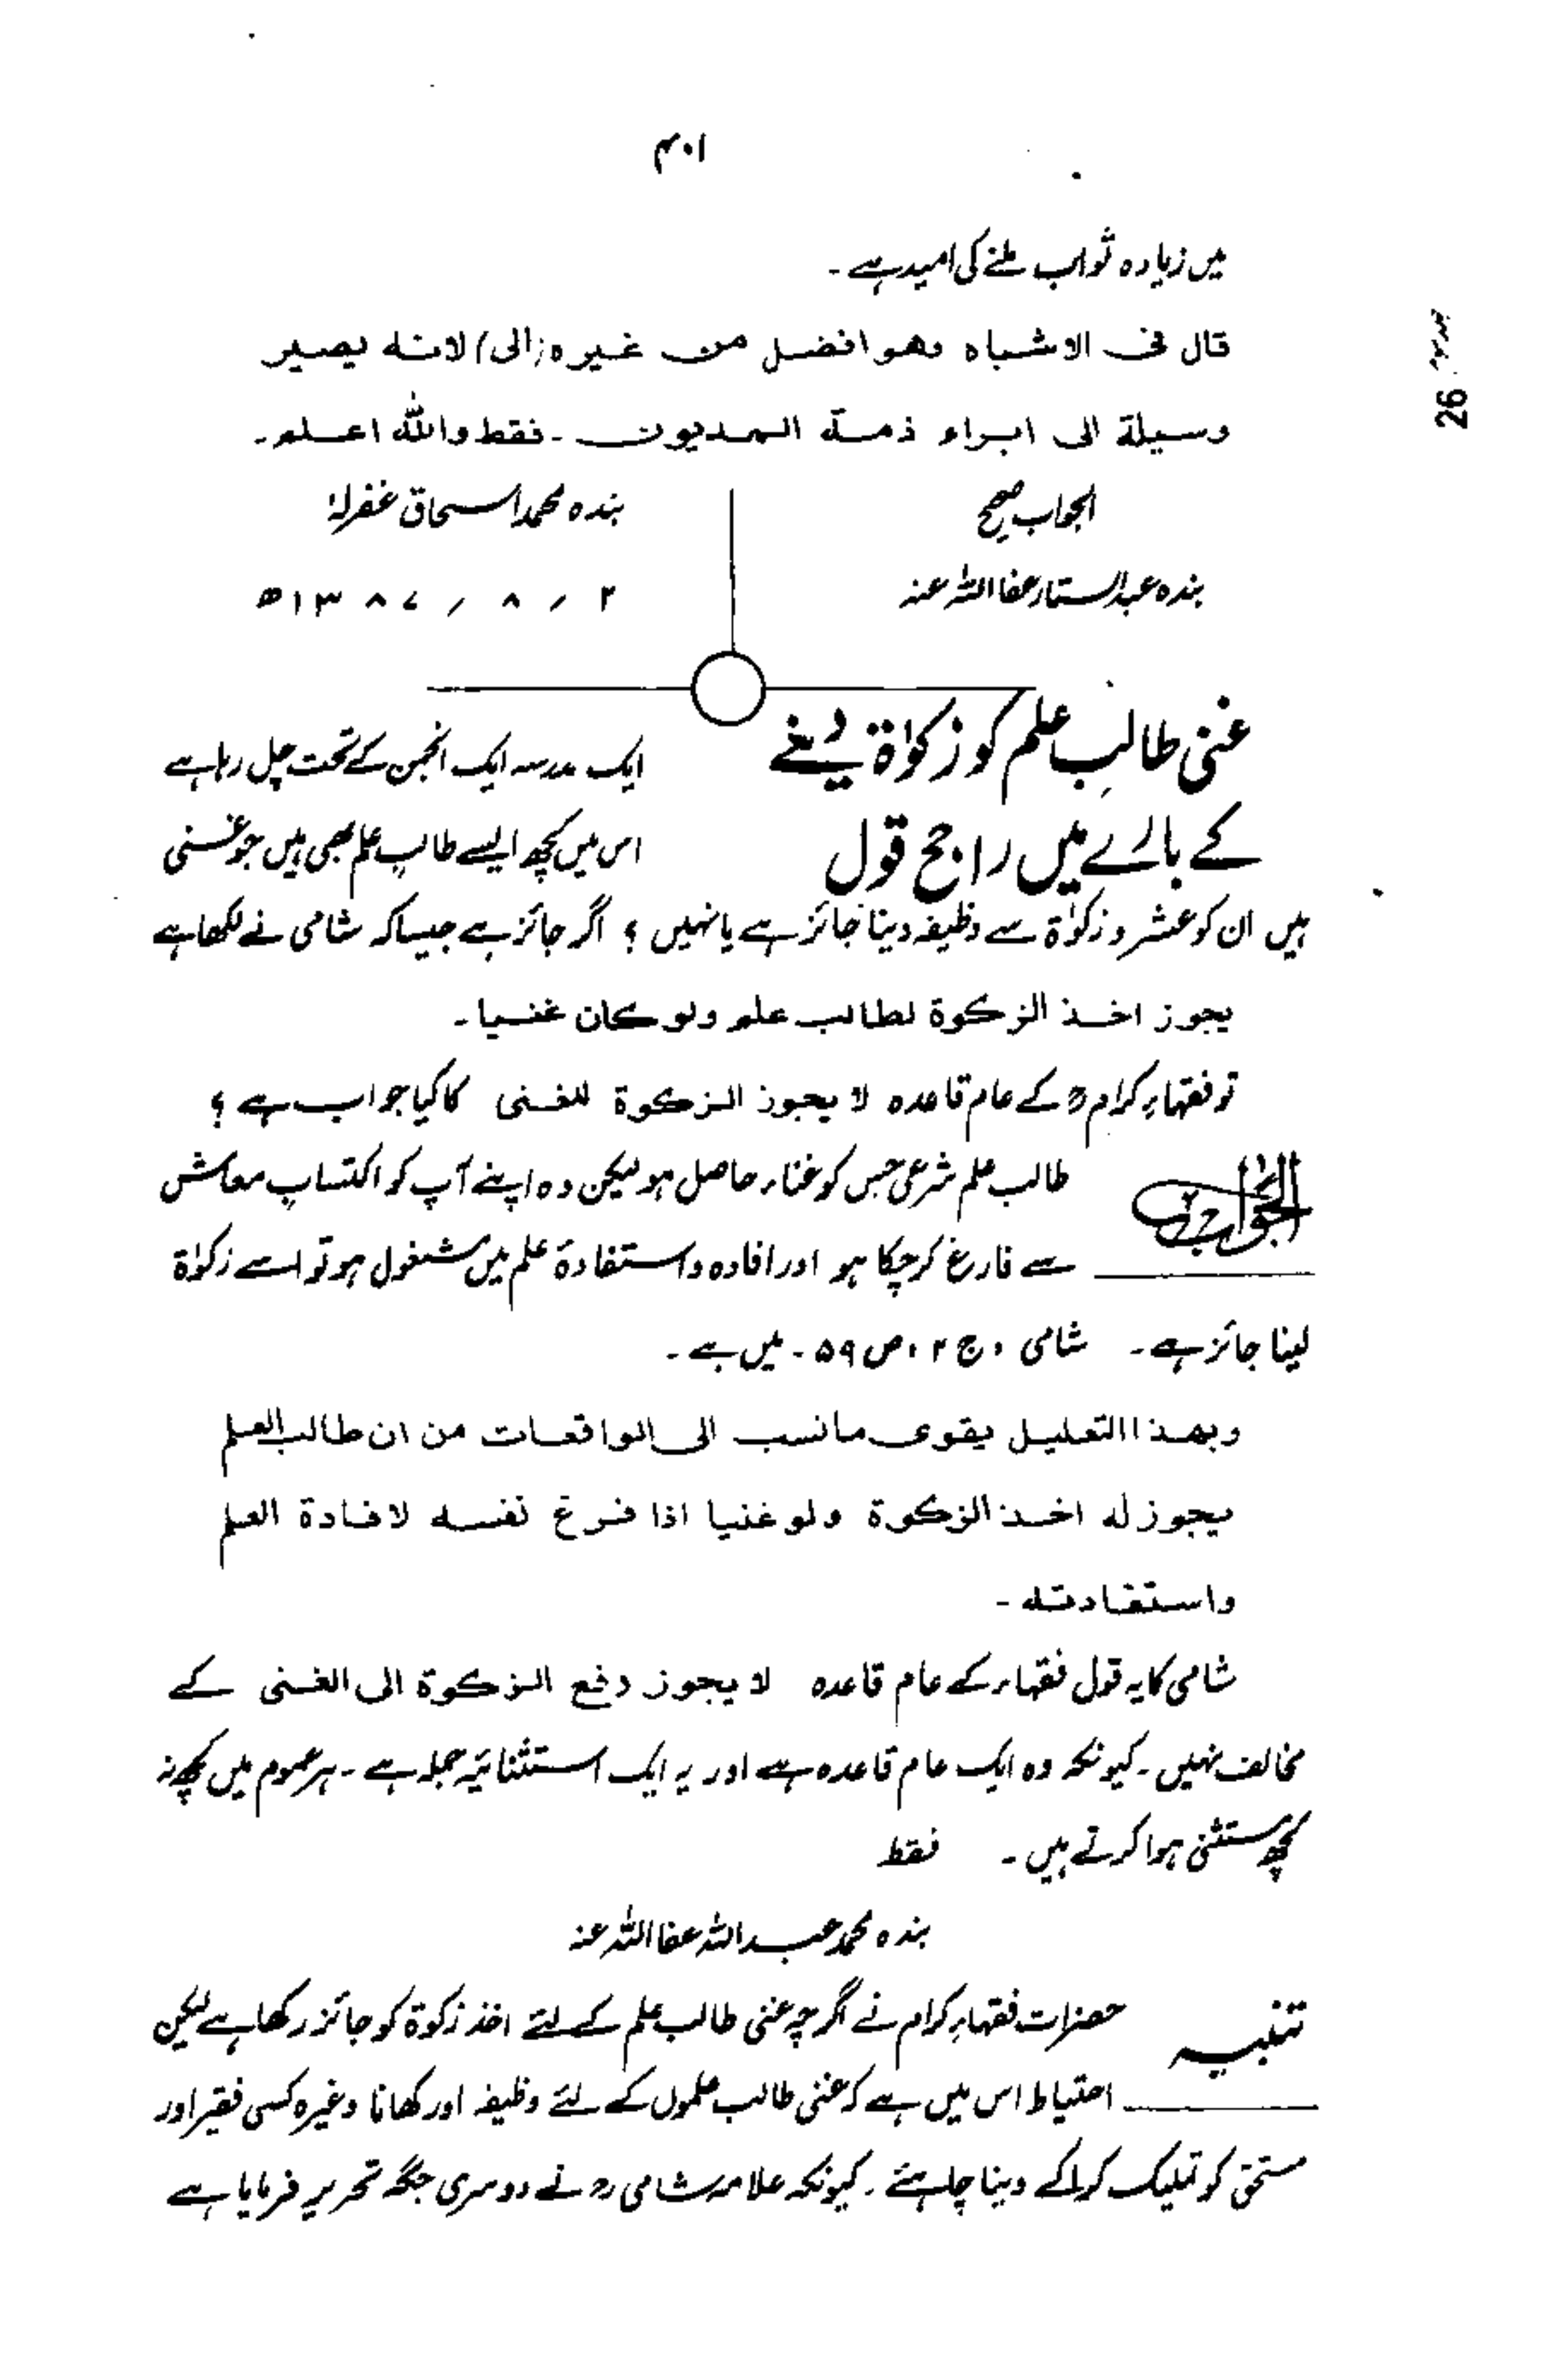 ۴۰۱
میں زیادہ ثواب ملنے کی امید ہے۔
قال فی الاشباہ وھو افضل من غیرہ (الی) لانہ یصیر
وسیلة الی ابراء ذمة المدیون ۔ فقط واللہ اعلم ۔
الجواب صحیح
بندہ عبدالستار عفا اللہ عنہ
بندہ محمد اسحاق غفرلہٗ
۲ / ۸ / ۱۳۸۷ھ
غنی طالبِ علم کو زکوٰۃ دینے
کے بارے میں راجح قول
ایک مدرسہ ایک انجمن کے تحت چل رہا ہے
اس میں کچھ ایسے طالب علم بھی ہیں جو غنی
ہیں ان کو عشر و زکوٰۃ سے وظیفہ دینا جائز ہے یا نہیں ؟ اگر جائز ہے جیسا کہ شامی نے لکھا ہے
یجوز اخذ الزکوة لطالب علم ولو کان غنیا ۔
تو فقہاءِ کرامؒ کے عام قاعدہ لا یجوز الزکوة للغنی کا کیا جواب ہے ؟
الجواب
طالب علم شرعی جس کو غناء حاصل ہو لیکن وہ اپنے آپ کو اکتسابِ معاش
سے فارغ کر چکا ہو اور افادہ و استفادۂ علم میں مشغول ہو تو اسے زکوٰۃ
لینا جائز ہے ۔ شامی ، ج ۲ ، ص ۵۹ ۔ میں ہے ۔
وبھذا التعلیل یقوی ما نسب الی الواقعات من ان طالب العلم
یجوز لہ اخذ الزکوة ولو غنیا اذا فرغ نفسہ لافادة العلم
واستفادتہ ۔
شامی کا یہ قول فقہاء کے عام قاعدہ لا یجوز دفع الزکوة الی الغنی کے
مخالف نہیں ۔ کیونکہ وہ ایک عام قاعدہ ہے اور یہ ایک استثنائیہ جملہ ہے ۔ ہر عموم میں کچھ نہ
کچھ مستثنیٰ ہوا کرتے ہیں ۔ فقط
بندہ محمد عبداللہ عفا اللہ عنہ
تنبیہ
حضرات فقہاءِ کرام نے اگرچہ غنی طالب علم کے لئے اخذ زکوٰۃ کو جائز رکھا ہے لیکن
احتیاط اس میں ہے کہ غنی طالب علموں کے لئے وظیفہ اور کھانا وغیرہ کسی فقیر اور
مستحق کو تملیک کرا کے دینا چاہئے ۔ کیونکہ علامہ شامیؒ نے دوسری جگہ تحریر فرمایا ہے
26